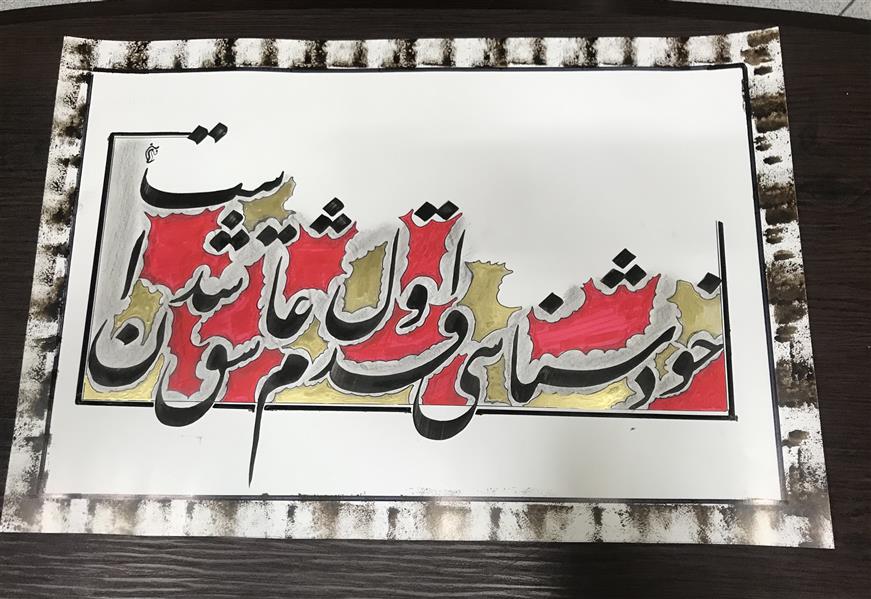 خودشناسی قدم اول عاشق شدن است